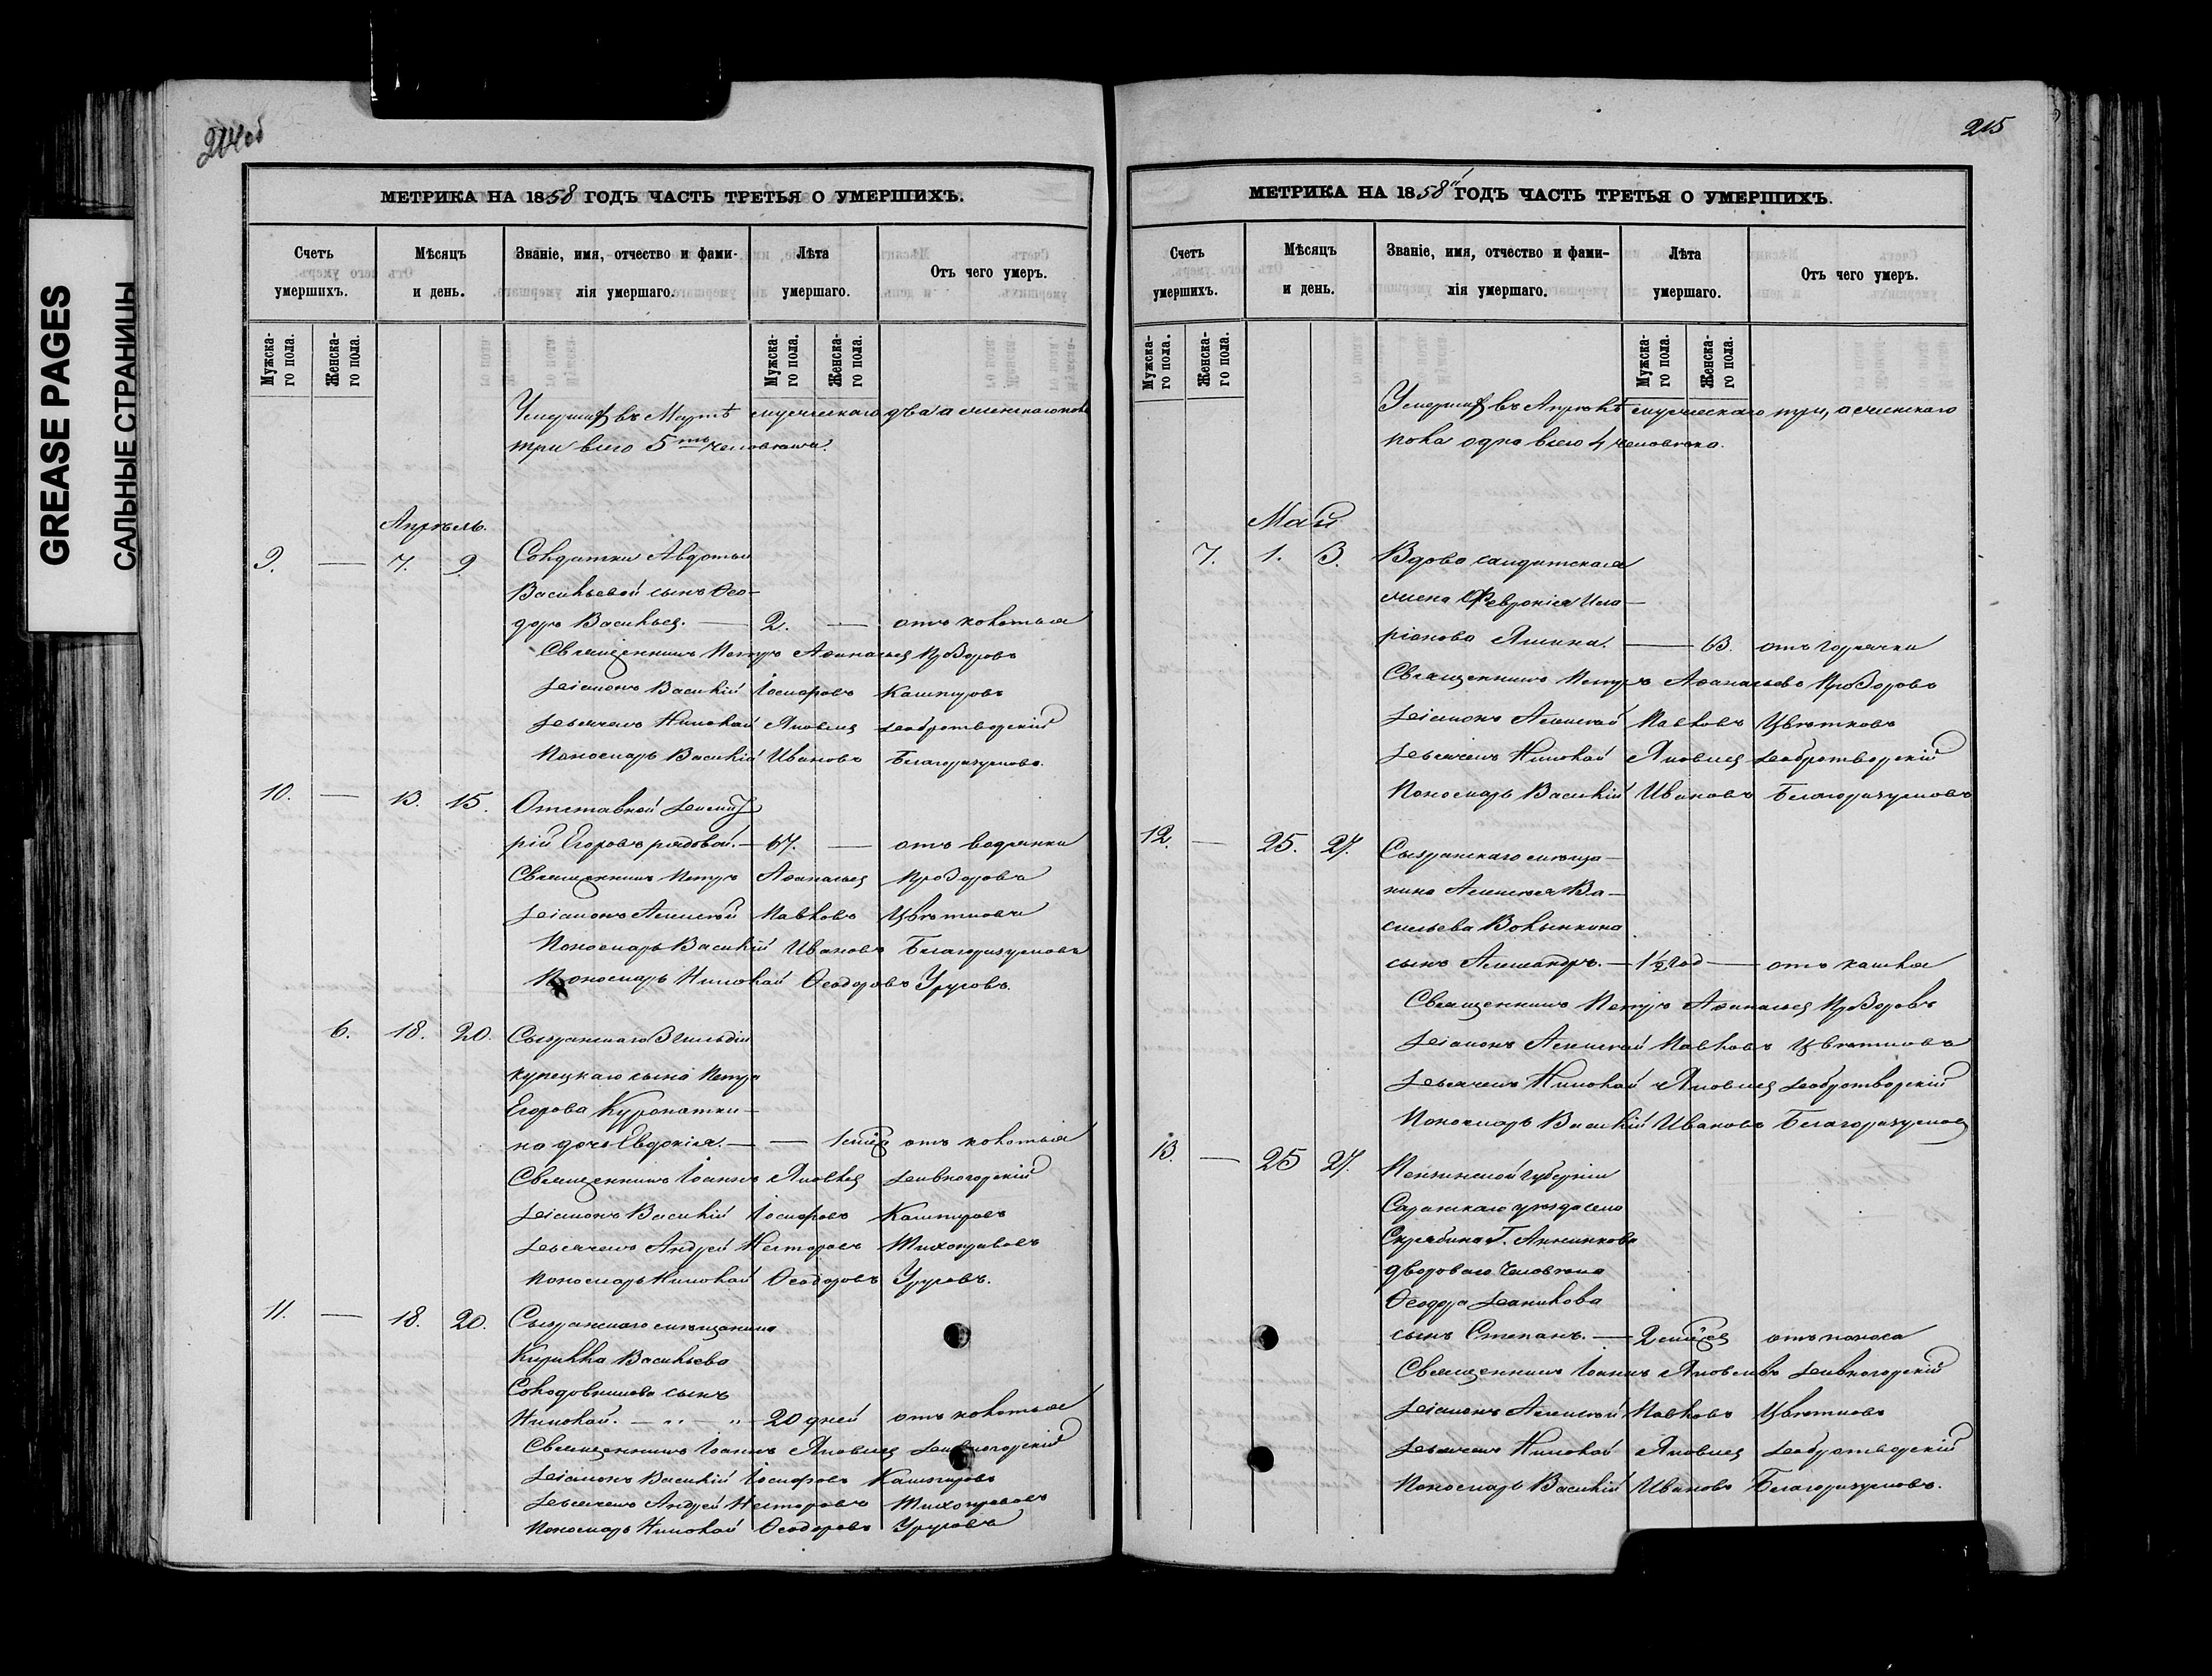 GREASE PAGES
САЛЬНЫЕ СТРАНИЦЫ
214об
МЕТРИКА НА 1858 ГОДЪ ЧАСТЬ ТРЕТЬЯ О УМЕРШИХЪ.
Счетъ умершихъ.
Мѣсяцъ и день.
Званіе, имя, отчество и фами-
лія умершаго.
Лѣта умершаго.
Отъ чего умеръ.
Мужска-
го пола.
Женска-
го пола.
Мужска-
го пола.
Женска-
го пола.
Умершихъ въ Мартѣ мужескаго два а женскаго пола
три всего 5ть человѣкъ.
Апрѣль.
9. — 7. 9. Солдатки Авдотьи
Васильевой сынъ Ѳео-
доръ Васильев. — 2. — отъ колотья
Священникъ Петръ Аѳанасьев Прозоровъ
Діаконъ Василій Іосифовъ Кашпуровъ
Дьячекъ Николай Яковлев Добротворскій
Пономарь Василій Ивановъ Благоразумовъ.
10. — 13. 15. Отставной Димит
рій Егоровъ рядовой. — 67. — отъ водянки
Священникъ Петръ Аѳанасьев Прозоровъ
Діаконъ Алексѣй Павловъ Цвѣтковъ
Пономарь Василій Ивановъ Благоразумовъ
Пономарь Николай Ѳеодоровъ Уруровъ.
6. 18. 20. Сызранскаго 3 гильдіи
купецкаго сына Петра
Егорова Куропатки-
на дочь Евдокія. — — 1 мѣс отъ колотья
Священникъ Іоаннъ Яковлев Дивногорскій
Діаконъ Василій Іосифовъ Кашпуровъ
Дьячекъ Андрей Несторовъ Тихонравовъ
Пономарь Николай Ѳеодоровъ Уруровъ.
11. — 18. 20. Сызранскаго мѣщанина
Кирилла Васильева
Солодовникова сынъ
Николай. — „ — „ — 20 дней отъ колотья
Священникъ Іоаннъ Яковлев Дивногорскій
Діаконъ Василій Іосифовъ Кашпуровъ
Дьячекъ Андрей Несторовъ Тихонравовъ
Пономарь Николай Ѳеодоровъ Уруровъ
215
МЕТРИКА НА 1858й ГОДЪ ЧАСТЬ ТРЕТЬЯ О УМЕРШИХЪ.
Счетъ умершихъ.
Мѣсяцъ и день.
Званіе, имя, отчество и фами-
лія умершаго.
Лѣта умершаго.
Отъ чего умеръ.
Мужска-
го пола.
Женска-
го пола.
Мужска-
го пола.
Женска-
го пола.
Умершихъ въ Апрѣлѣ мужескаго три, а женскаго
пола одна всего 4 человѣка.
Май
7. 1. 3. Вдова салдатская
жена Февронія Ила-
ріонова — 63. отъ горячки
Священникъ Петръ Аѳанасьевъ Прозоровъ
Діаконъ Алексѣй Павловъ Цвѣтковъ
Дьячекъ Николай Яковлев Добротворскій
Пономарь Василій Ивановъ Благоразумовъ
12. — 25. 27. Сызранскаго мѣща-
нина Алексѣя Ва-
сильева Волынкина
сынъ Александръ. — 1½ год — отъ кашля
Священникъ Петръ Аѳанасьев Прозоровъ
Діаконъ Алексѣй Павловъ Цвѣтковъ
Дьячекъ Николай Яковлев Добротворскій
Пономарь Василій Ивановъ Благоразумов
13. — 25 27. Пензинской губерніи
Саранскаго уѣзда села
Скрябина Г. Анненкова
двороваго человѣка
Ѳеодора Данилова
сынъ Степанъ. — 2 мѣс отъ поноса
Священникъ Іоаннъ Яковлевъ Дивногорскій
Діаконъ Алексѣй Павловъ Цвѣтковъ
Дьячекъ Николай Яковлев Добротворскій
Пономарь Василій Ивановъ Благоразумовъ.